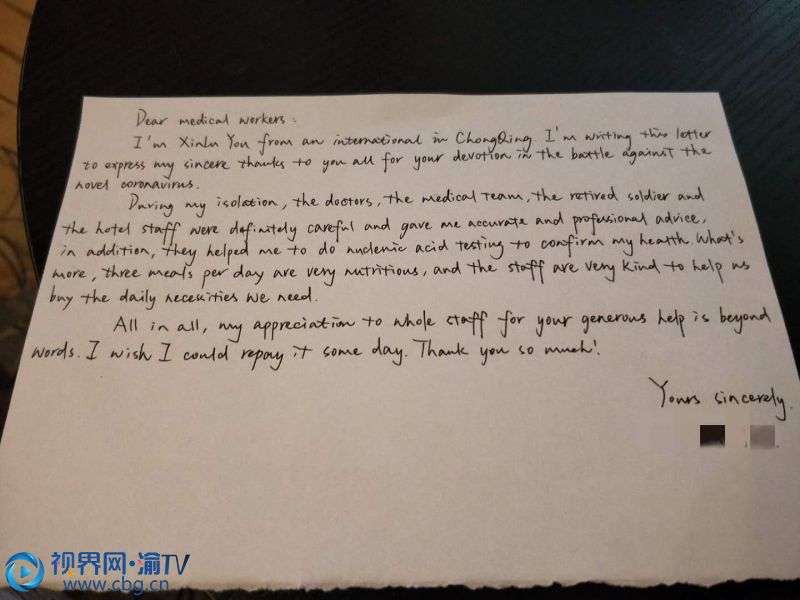 Dear medical workers:
I'm Xinlu You from an international in ChongQing. I'm writing this letter
to express my sincere thanks to you all for your devotion in the battle against the
novel coronavirus.
During my isolation, the doctors, the medical team, the retired soldier and
the hotel staff were definitely careful and gave me accurate and professional advice,
in addition, they helped me to do nuclenic acid testing to confirm my health. What's
more, three meals per day are very nutritious, and the staff are very kind to help us
buy the daily necessities we need.
All in all, my appreciation to whole staff for your generous help is beyond
words. I wish I could repay it some day. Thank you so much!
Yours sincerely.
视界网·渝TV
www.cbg.cn